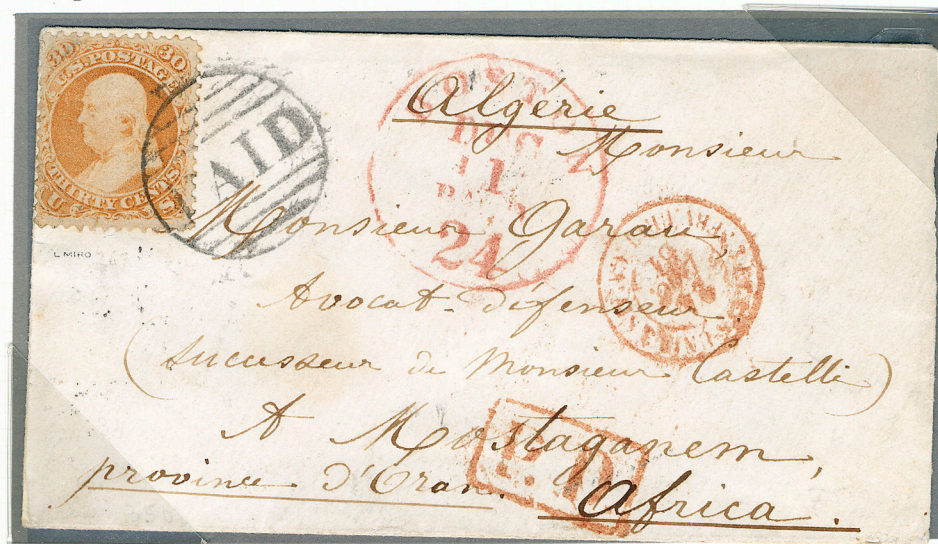 30 30
U.S. POSTAGE
THIRTY CENTS
U S
PAID
L. MIRO
BOSTON
DEC
11
PAID
24
Algérie
Monsieur
Monsieur Garau,
Avocat-défenseur
(successeur de Monsieur Castelli)
A Mostaganem,
province d'Oran.
Africa.
P.D.